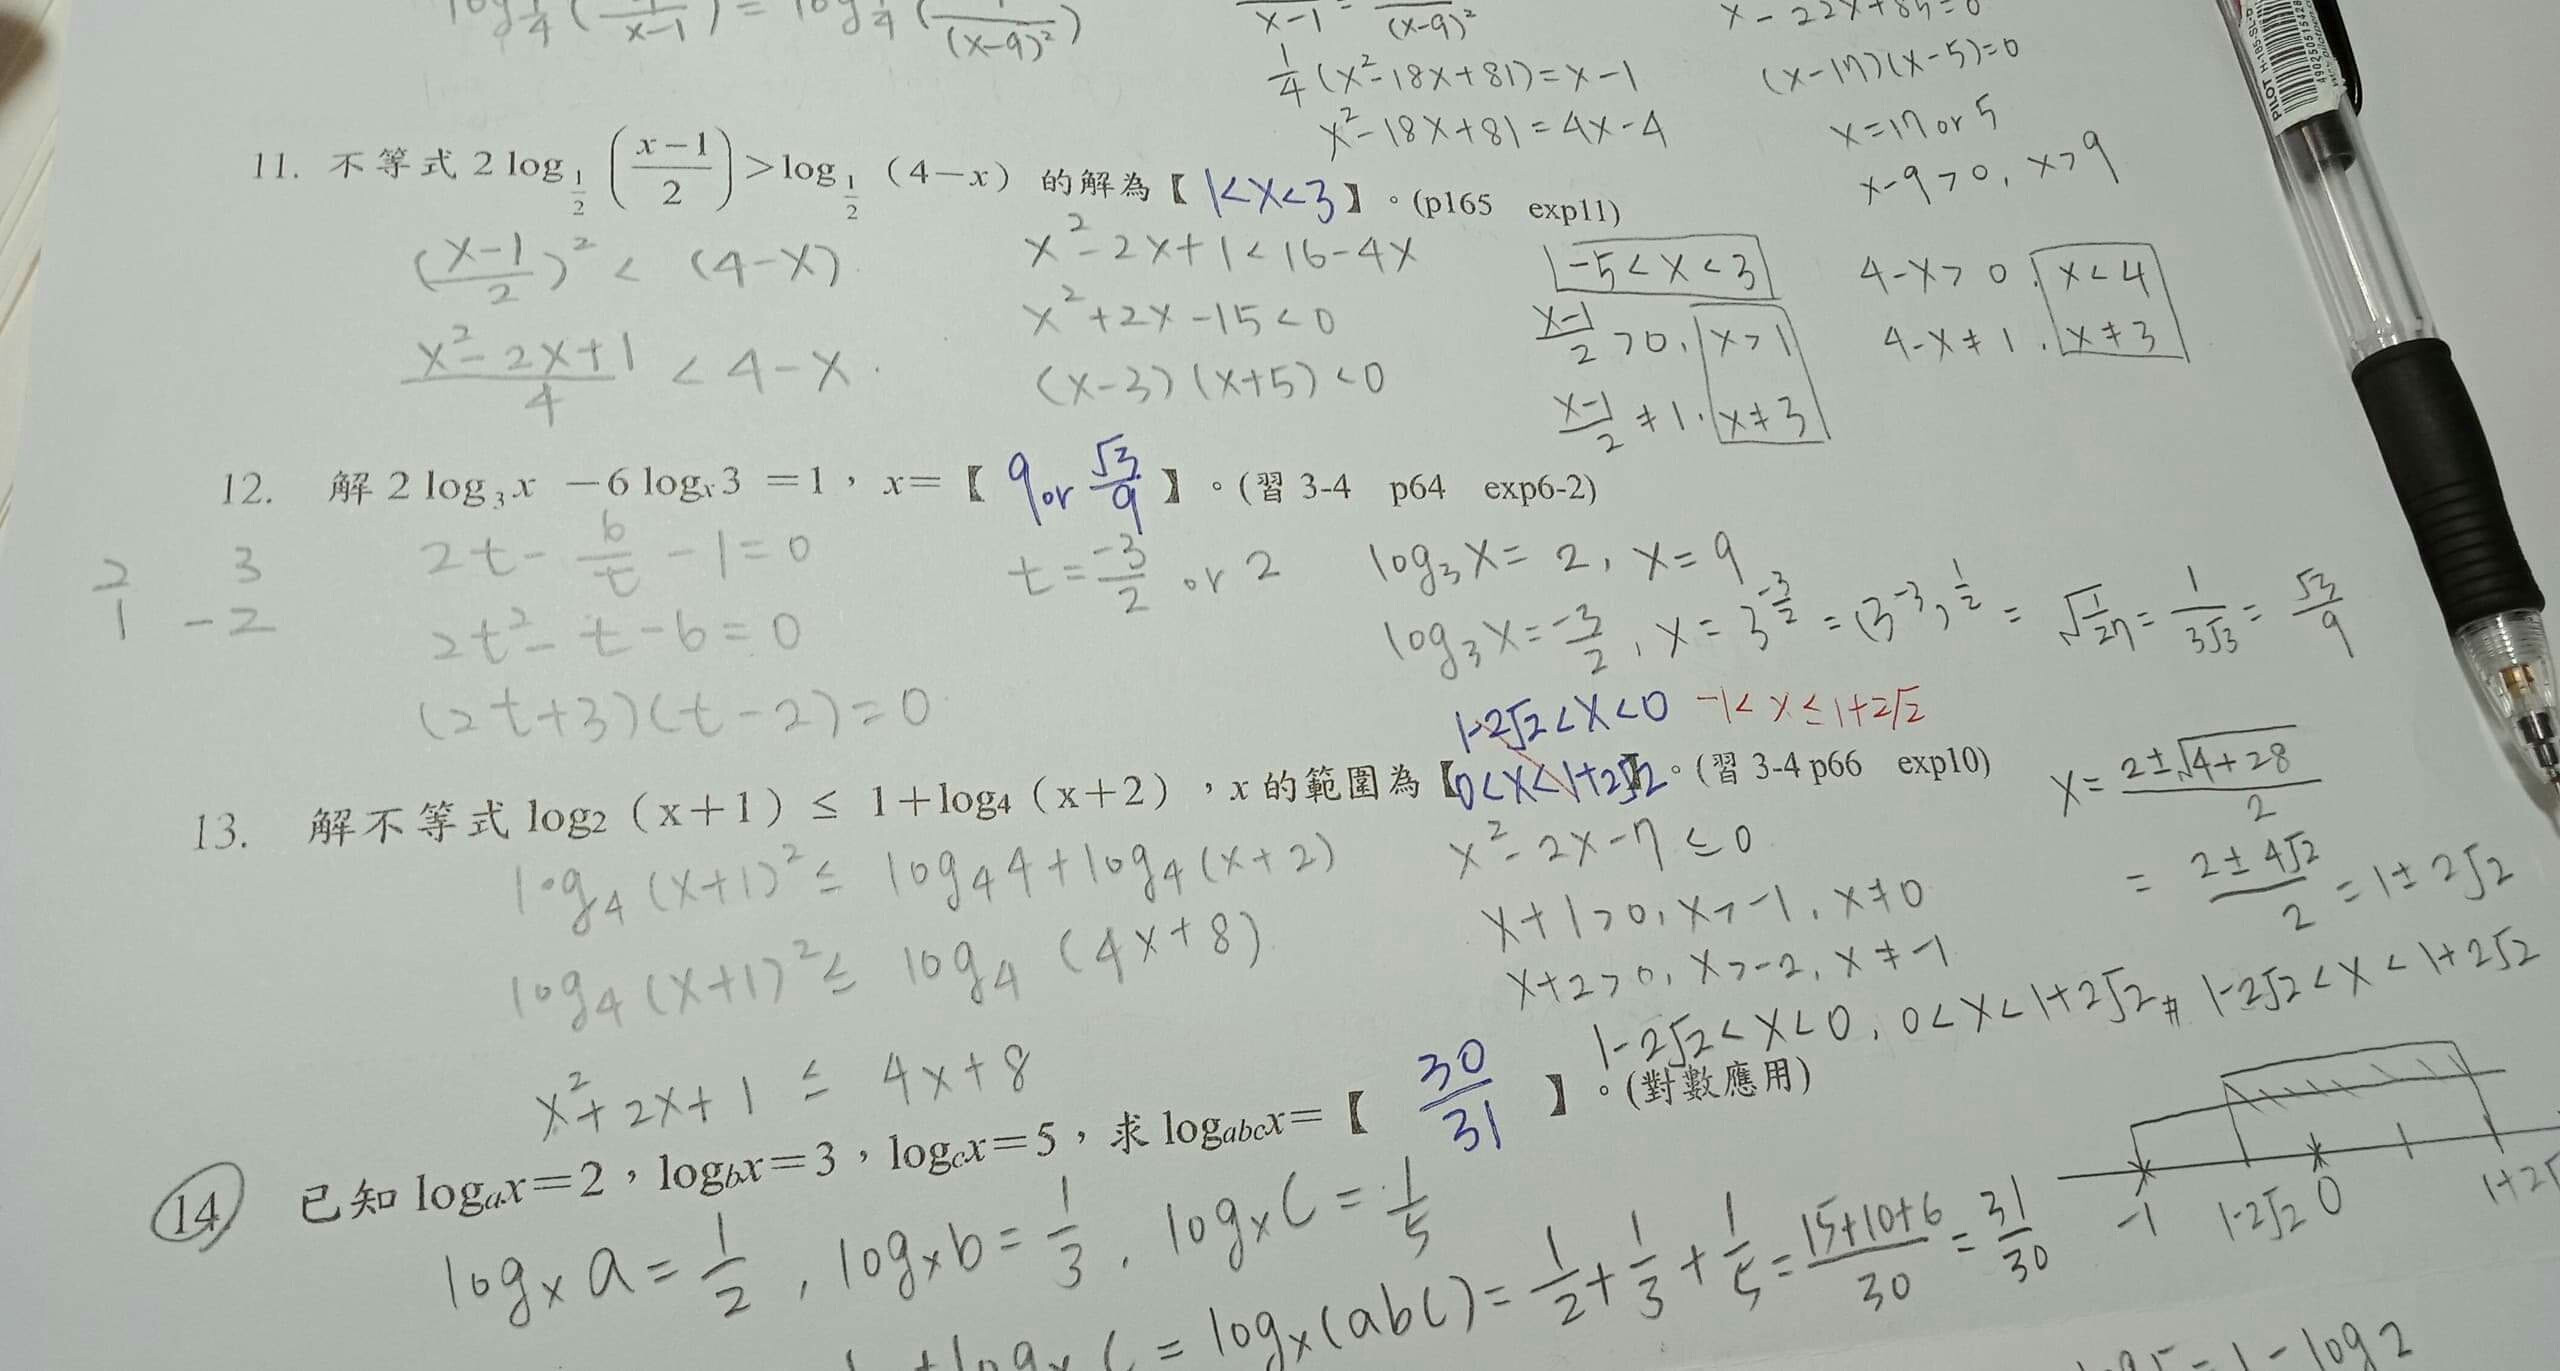 x-1 = (x-9)²
x - 22x+85=0
1/4 (x²-18x+81)=x-1
(x-17)(x-5)=0
x²-18x+81=4x-4
x=17 or 5
x-9>0, x>9
11. 不等式 2 log_{1/2} ((x-1)/2) > log_{1/2} (4-x) 的解為【 1<x<3 】。(p165 exp11)
((x-1)/2)² < (4-x)
(x²-2x+1)/4 < 4-x.
x²-2x+1<16-4x
x²+2x-15<0
(x-3)(x+5)<0
-5<x<3
(x-1)/2 >0, x>1
(x-1)/2 ≠1, x≠3
4-x>0, x<4
4-x≠1, x≠3
12. 解 2 log₃x -6 logₓ3 =1,x=【 9 or √3/9 】。(習 3-4 p64 exp6-2)
2 3
1 -2
2t - 6/t - 1=0
2t²-t-6=0
(2t+3)(t-2)=0
t = -3/2 or 2
log₃x= 2, x=9
log₃x= -3/2, x= 3^{-3/2} = (3^{-3})^{1/2} = √(1/27) = 1/(3√3) = √3/9
1-2√2<x<0 -1<x≤1+2√2
13. 解不等式 log₂(x+1)≤ 1+log₄(x+2),x 的範圍為【0<x<1+2√2】。(習 3-4 p66 exp10)
log₄(x+1)² ≤ log₄4+log₄(x+2)
log₄(x+1)² ≤ log₄(4x+8)
x²+2x+1 ≤ 4x+8
x²-2x-7≤0
x+1>0, x>-1, x≠0
x+2>0, x>-2, x≠-1
1-2√2<x<0, 0<x<1+2√2 #
x= (2±√(4+28))/2
= (2±4√2)/2 = 1±2√2
1-2√2<x<1+2√2
-1 1-2√2 0
14 已知 logₐx=2,log_bx=3,log_cx=5,求 log_{abc}x=【 30/31 】。(對數應用)
logₓa= 1/2, logₓb= 1/3, logₓc= 1/5
logₓc = logₓ(abc)= 1/2+1/3+1/5= (15+10+6)/30 = 31/30
=1-log2
PILOT